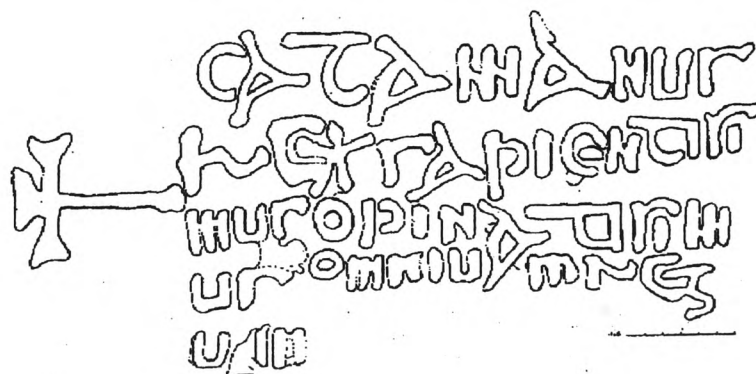 catamanus
rex sapientisi
mus opinatisim
us omnium reg
um